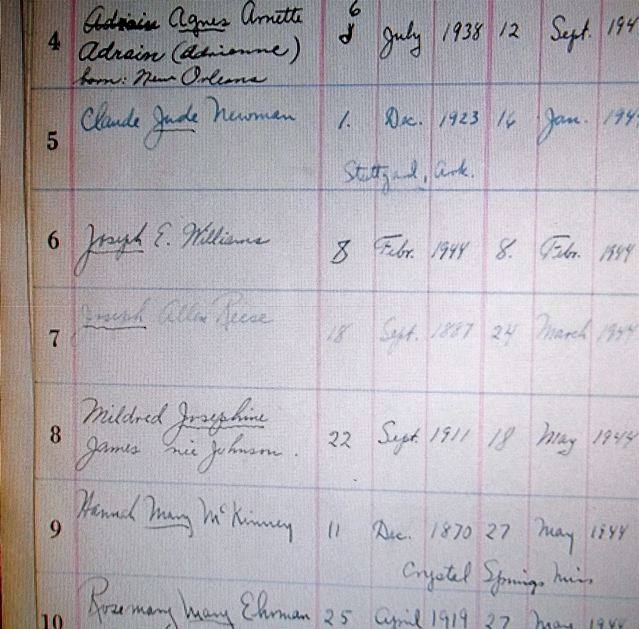 6
4 Adrain Agnes Arnette 8 July 1938 12 Sept. 194
Adrain (Adrienne)
born: New Orleans
5 Claude Jude Newman 1. Dec. 1923 16 Jan. 194
Stuttgard, Ark.
6 Joseph E. Williams 8 Febr. 1944 8. Febr. 1944
7 Joseph Allen Reese 18 Sept. 1887 24 March 1944
8 Mildred Josephine
James nie Johnson. 22 Sept. 1911 18 May 1944
9 Hannah Mary McKinney 11 Dec. 1870 27 May 1944
Crystal Springs Miss
10 Rosemary Mary Ehrman 25 April 1919 27 May 1944